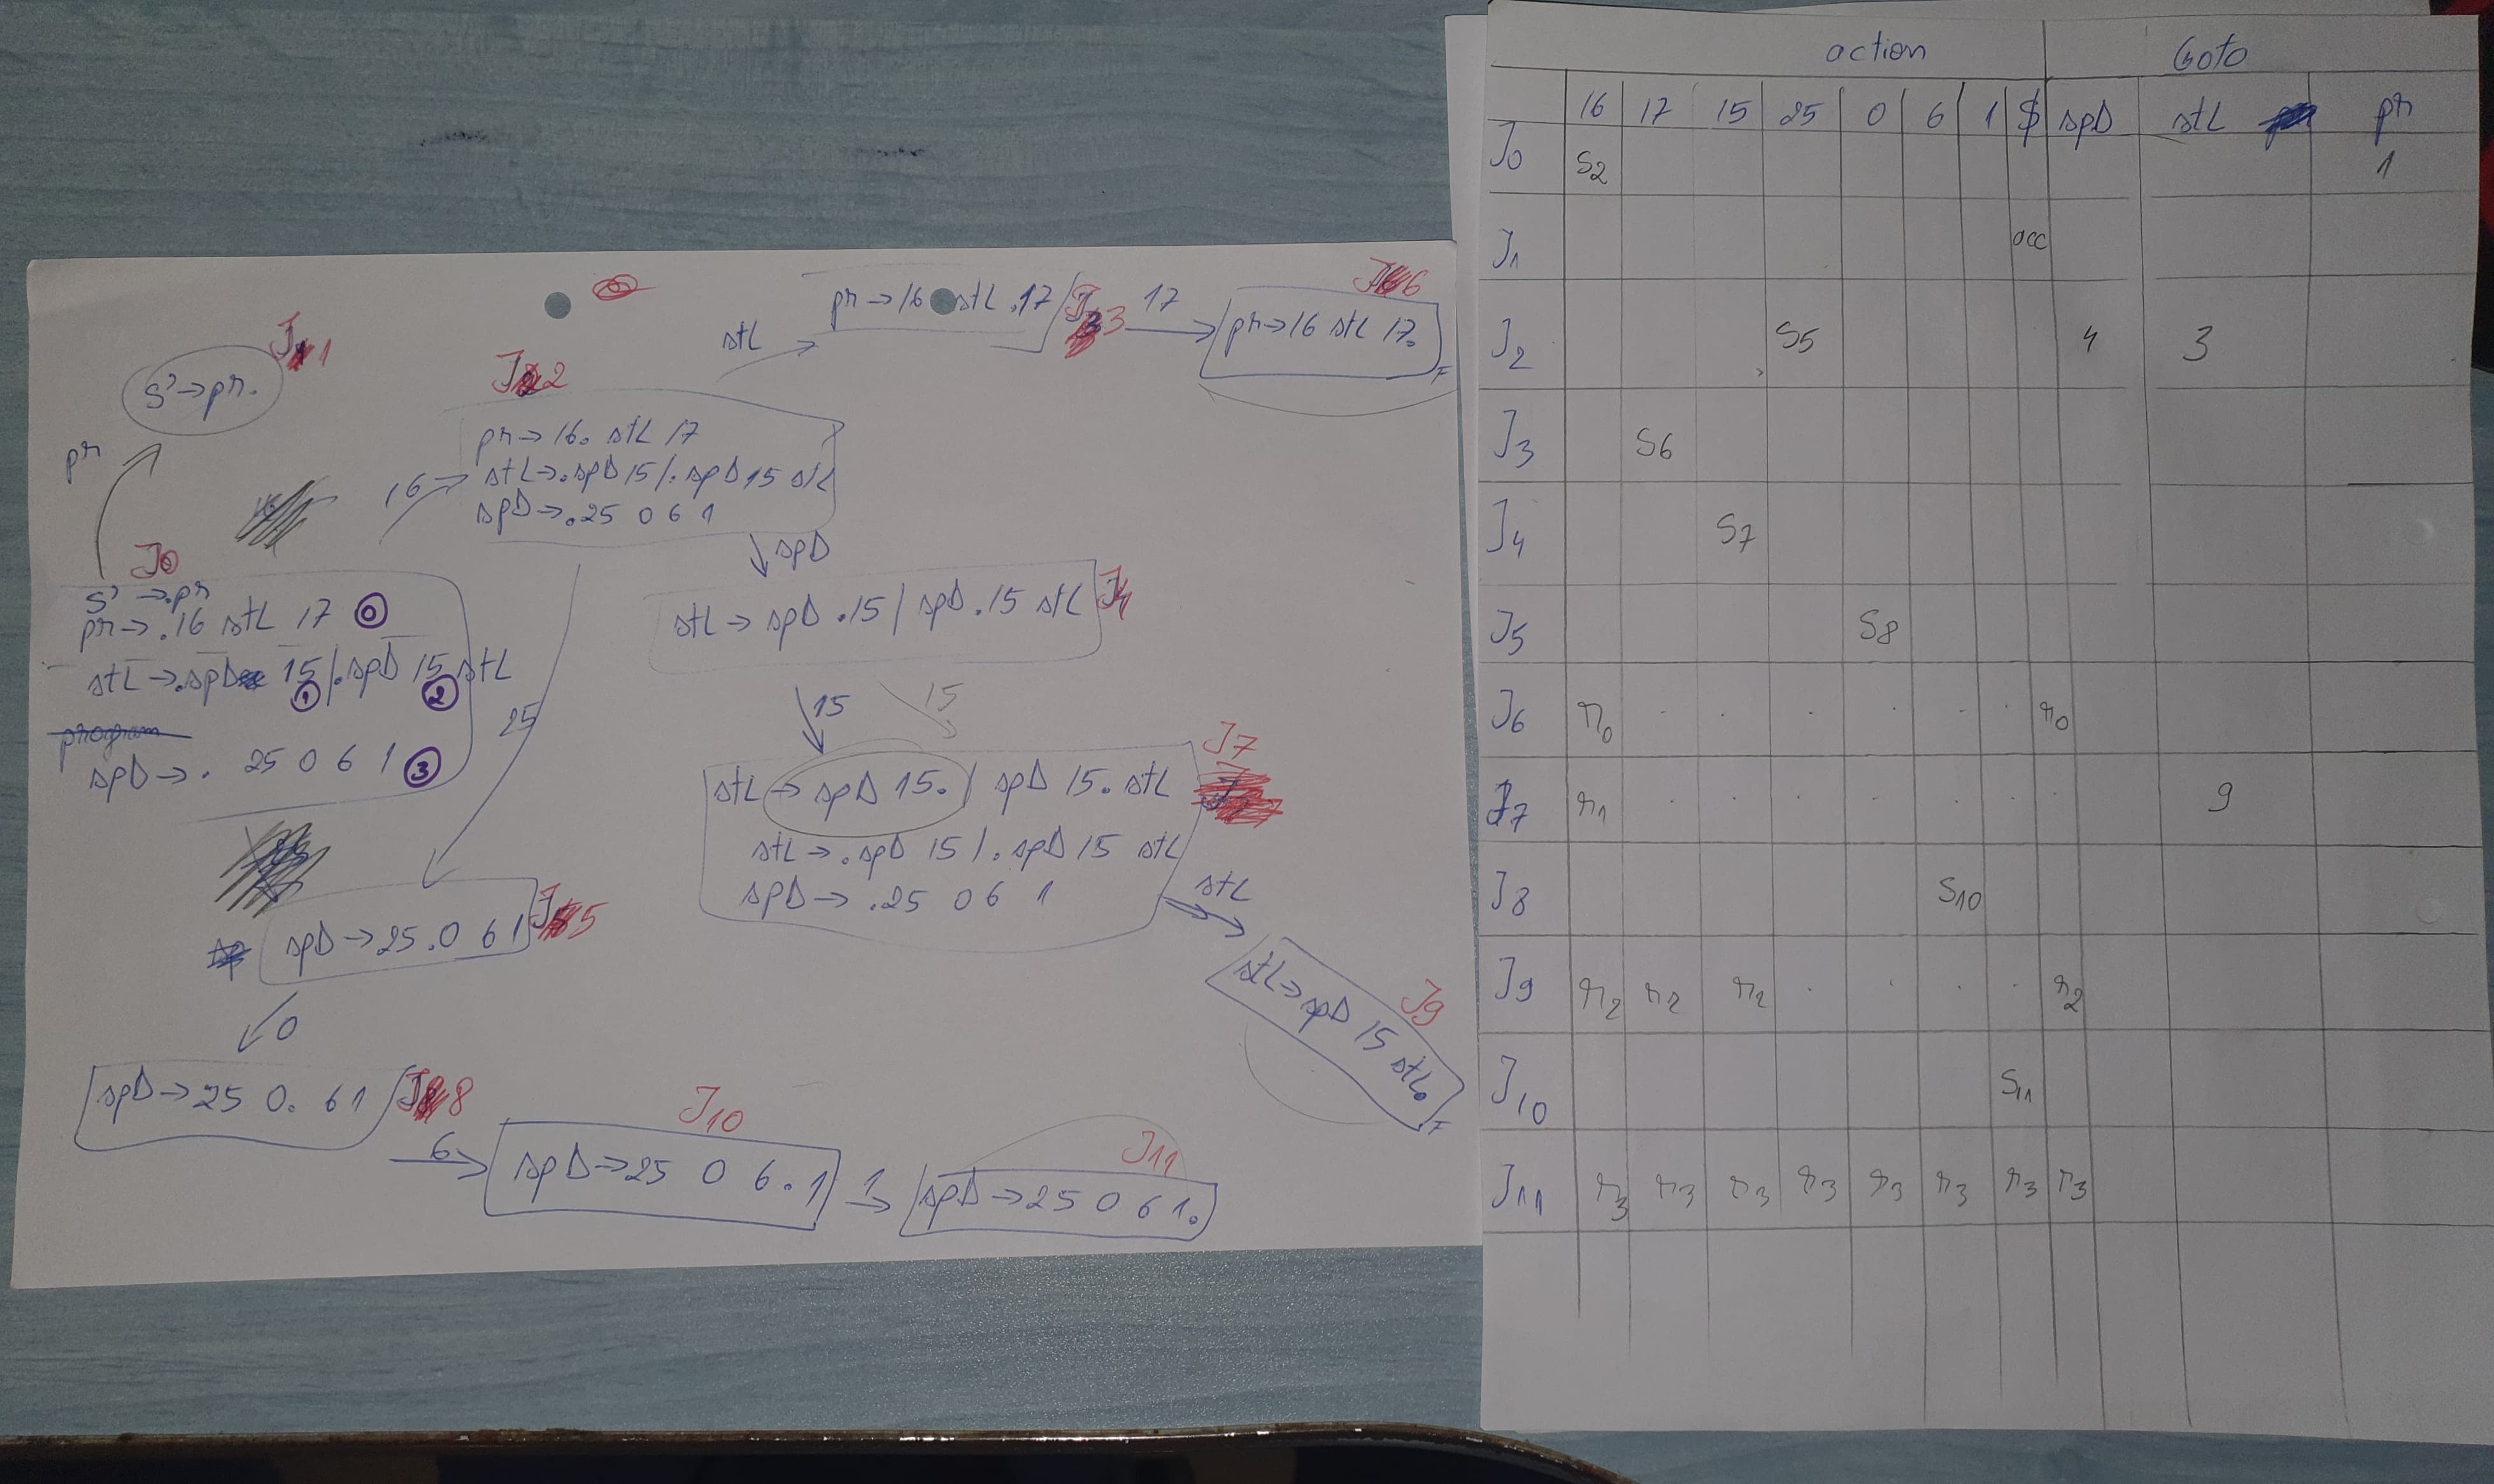 S' → pr.
J1
pr
J0
S' → .pr
pr → .16 stL 17 ⓪
stL → .spD 15 / .spD 15 stL
① ②
program
spD → . 25 0 6 1 ③
16
J2
pr → 16. stL 17
stL → .spD 15 / .spD 15 stL
spD → .25 0 6 1
stL
pr → 16 stL .17
J3
17
J6
pr → 16 stL 17.
F
spD
stL → spD .15 / spD .15 stL
J4
15
15
J7
stL → spD 15. / spD 15. stL
stL → .spD 15 / .spD 15 stL
spD → .25 0 6 1
stL
J9
stL → spD 15 stL.
F
25
spD → 25 .0 6 1
J5
0
spD → 25 0. 6 1
J8
6
J10
spD → 25 0 6 . 1
1
J11
spD → 25 0 6 1.
action Goto
16 17 15 25 0 6 1 $ spD stL pr
J0 S2 1
J1 acc
J2 S5 4 3
J3 S6
J4 S7
J5 S8
J6 r0 . . . . . . r0
J7 r1 . . . . . . . 9
J8 S10
J9 r2 r2 r2 . . . . r2
J10 S11
J11 r3 r3 r3 r3 r3 r3 r3 r3